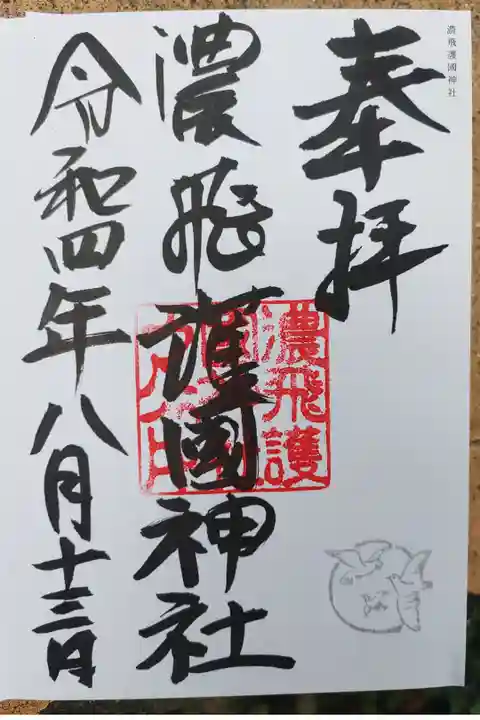 濃飛護國神社
奉拝
濃飛護國神社
濃飛護
令和四年八月十三日